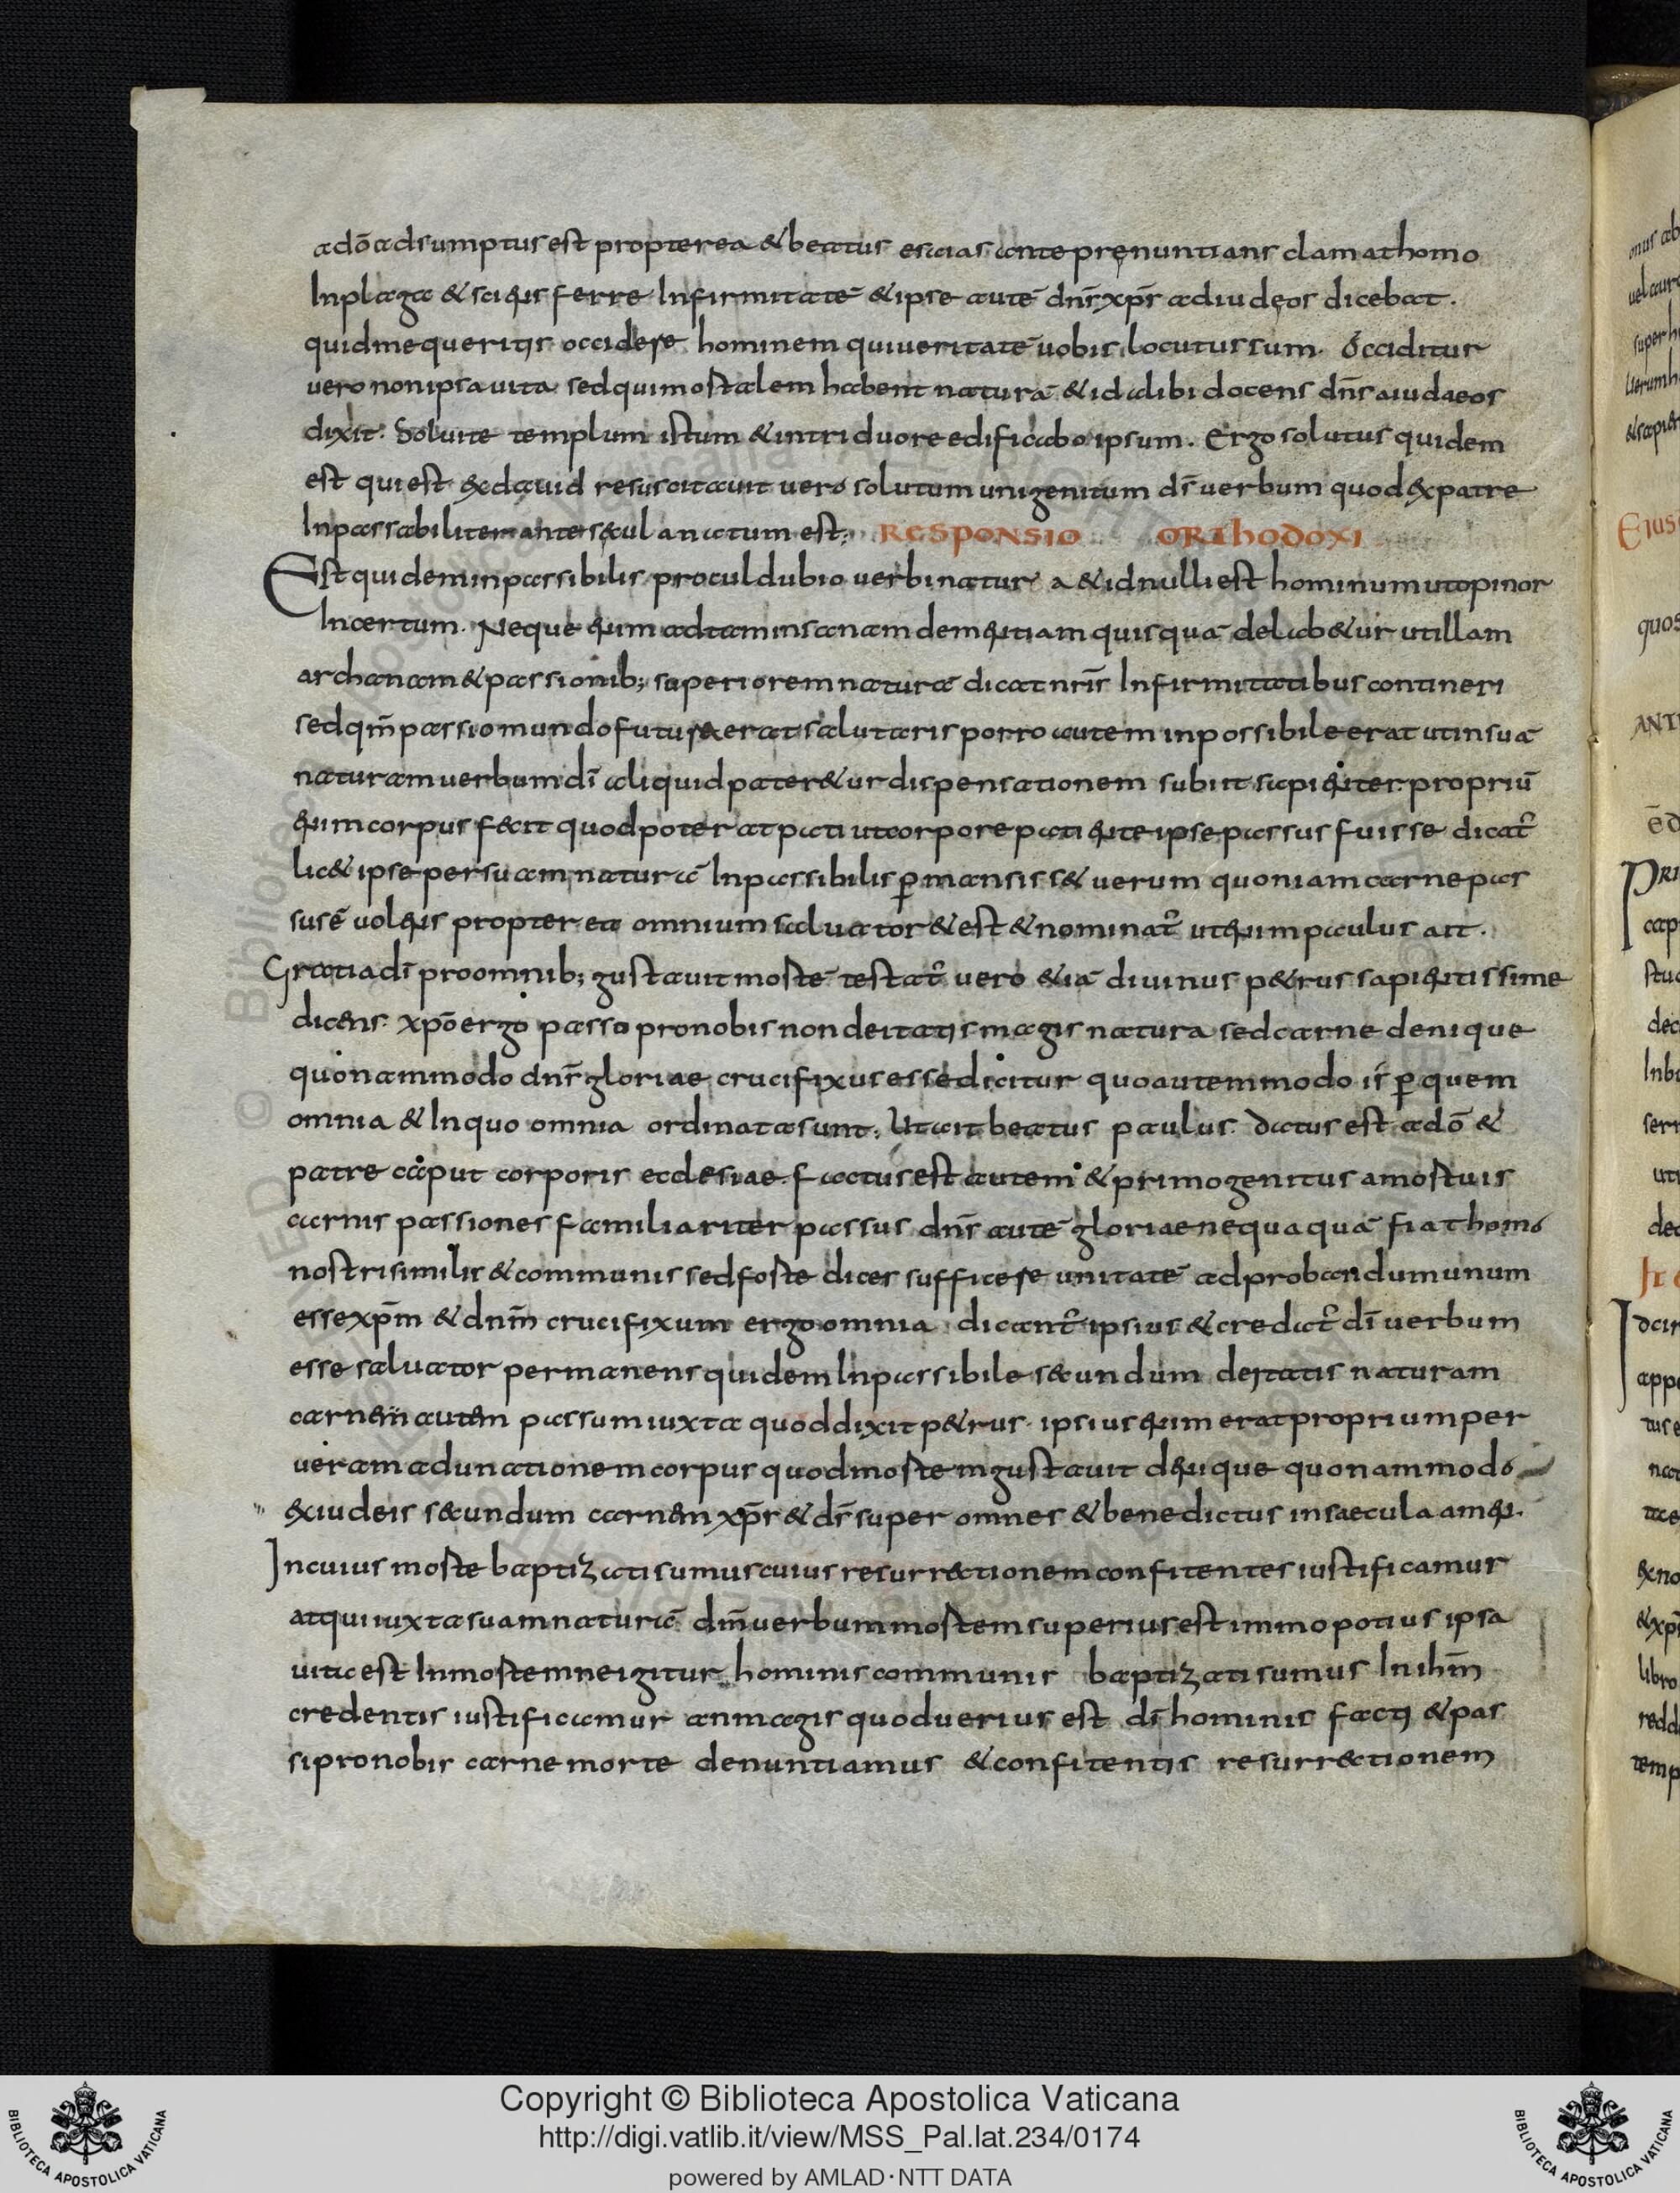 adō adsumptus est propterea & beatus esaias ante prenuntians clamat homo
In plaga & sciens ferre Infirmitatē & ipse autē dn̄s xp̄s adiudeos dicebat.
quid me queritis occidere hominem qui ueritatē uobis locutus sum. Occiditur
vero non ipsa uita sed qui mortalem habent naturā & id alibi docens dn̄s aiudaeos
dixit. Soluite templum istum & in triduo reedificabo ipsum. Ergo solutus quidem
est qui est ex dauid resuscitauit vero solutum unigenitum dī uerbum quod ex patre
Inpassabiliter ante secula natum est; RESPONSIO ORThODOXI
Est quidem inpassibilis procul dubio uerbi natura & id nulli est hominum ut opinor
Incertum. Neque enim ad tam insanam dementiam quisquā delabetur ut illam
archanam & passionib; superiorem naturā dicat nr̄is Infirmitatibus contineri
sed qm̄ passio mundo futura erat salutaris porro autem inpossibile erat ut in suā
naturam uerbum dī aliquid pateretur dispensationem subiit sapienter propriū
enim corpus fecit quod poterat pati ut corpore patiente ipse passus fuisse dicat̄
lic& ipse per suam naturā Inpassibilis p̄mansiss& uerum quoniam carne pas
sus ē uolens propterea omnium saluator & est & nominat̄ ut enim paulus ait.
Gratia dī pro omnib; gustauit mortē testat̄ vero etiā diuinus petrus sapientissime
dicens. xp̄o ergo passo pro nobis non deitatis magis natura sed carne denique
quonammodo dn̄s gloriae crucifixus esse dicitur quo autem modo is p̄ quem
omnia & In quo omnia ordinata sunt. Ut ait beatus paulus. datus est adō &
patre caput corporis ecclesiae factus est autem & primogenitus a mortuis
carnis passiones familiariter passus dn̄s autē gloriae nequaquā fiat homo
nostri similis & communis sed forte dices sufficere unitatē ad probandum unum
esse xp̄m & dn̄m crucifixum ergo omnia dicant̄ ipsius & credat̄ dī uerbum
esse saluator permanens quidem Inpassibile secundum deitatis naturam
carnem autem passum iuxta quod dixit petrus. ipsius enim erat proprium per
ueram adunationem corpus quod mortem gustauit denique quonammodo
ex iudeis secundum carnem xp̄s & dī super omnes & benedictus in saecula amen.
In cuius morte baptizati sumus cuius resurrectionem confitentes iustificamur
atqui iuxta suam naturā dm̄ uerbum mortem superius est immo potius ipsa
uita est In mortemne igitur hominis communis baptizati sumus In ihm̄
credentis iustificamur an magis quod uerius est dī hominis facti & pas
si pro nobis carne morte denuntiamus & confitentis resurrectionem
Copyright © Biblioteca Apostolica Vaticana
http://digi.vatlib.it/view/MSS_Pal.lat.234/0174
powered by AMLAD·NTT DATA